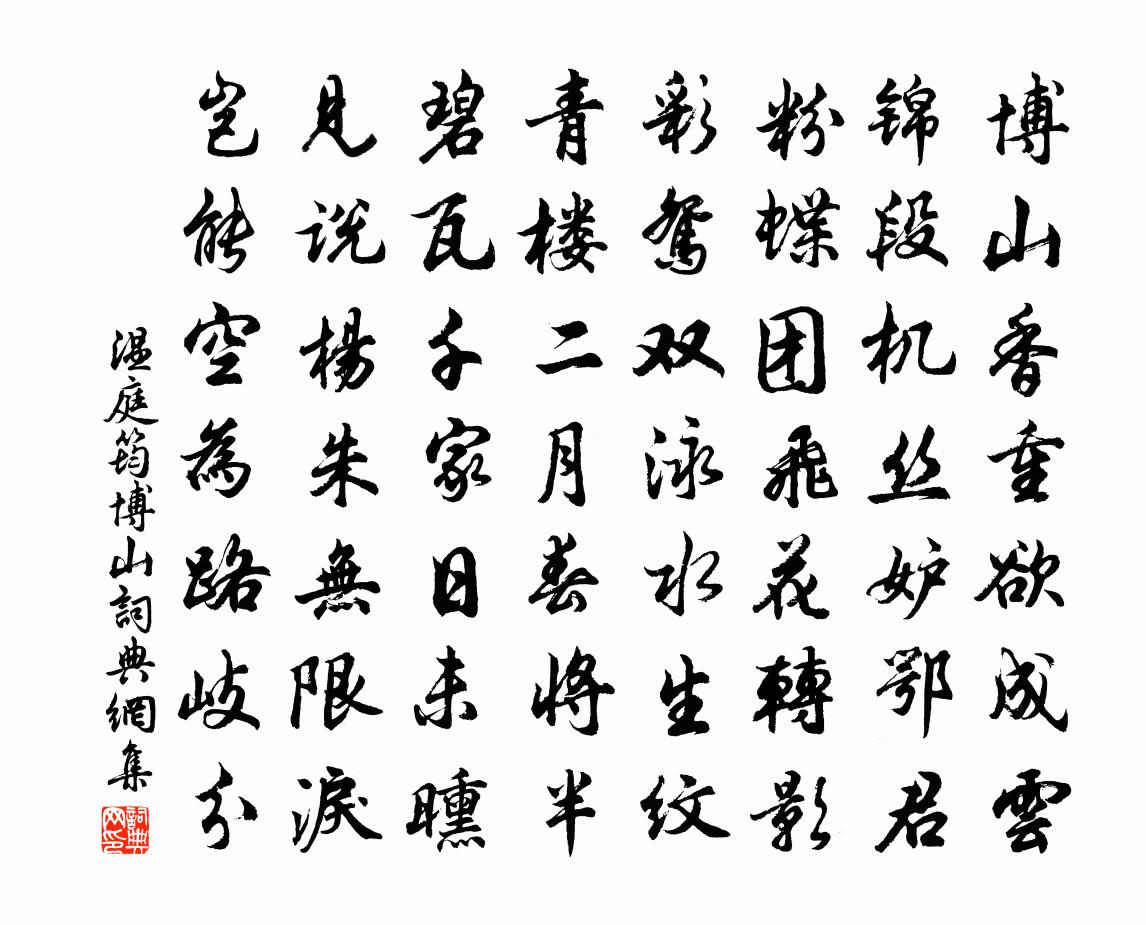 博山香重欲成雲
锦段机丝妒鄂君
粉蝶团飛花轉影
彩鸳双泳水生纹
青楼二月春將半
碧瓦千家日未曛
見说楊朱無限淚
岂能空為路岐分
温庭筠博山詞典網集
詞典网印